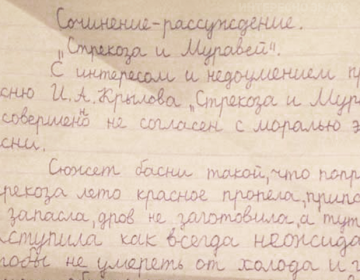 Сочинение-рассуждение.
„Стрекоза и Муравей".
С интересом и недоумением п
сню И.А.Крылова „Стрекоза и Мур
совершено н не согласен с моралью э
сни.
Сюжет басни такой, что попр
рекоза лето красное пропела, припа
запасла, дров не заготовила, а тут
ступила как всегда неожида
тобы не умереть от холода и